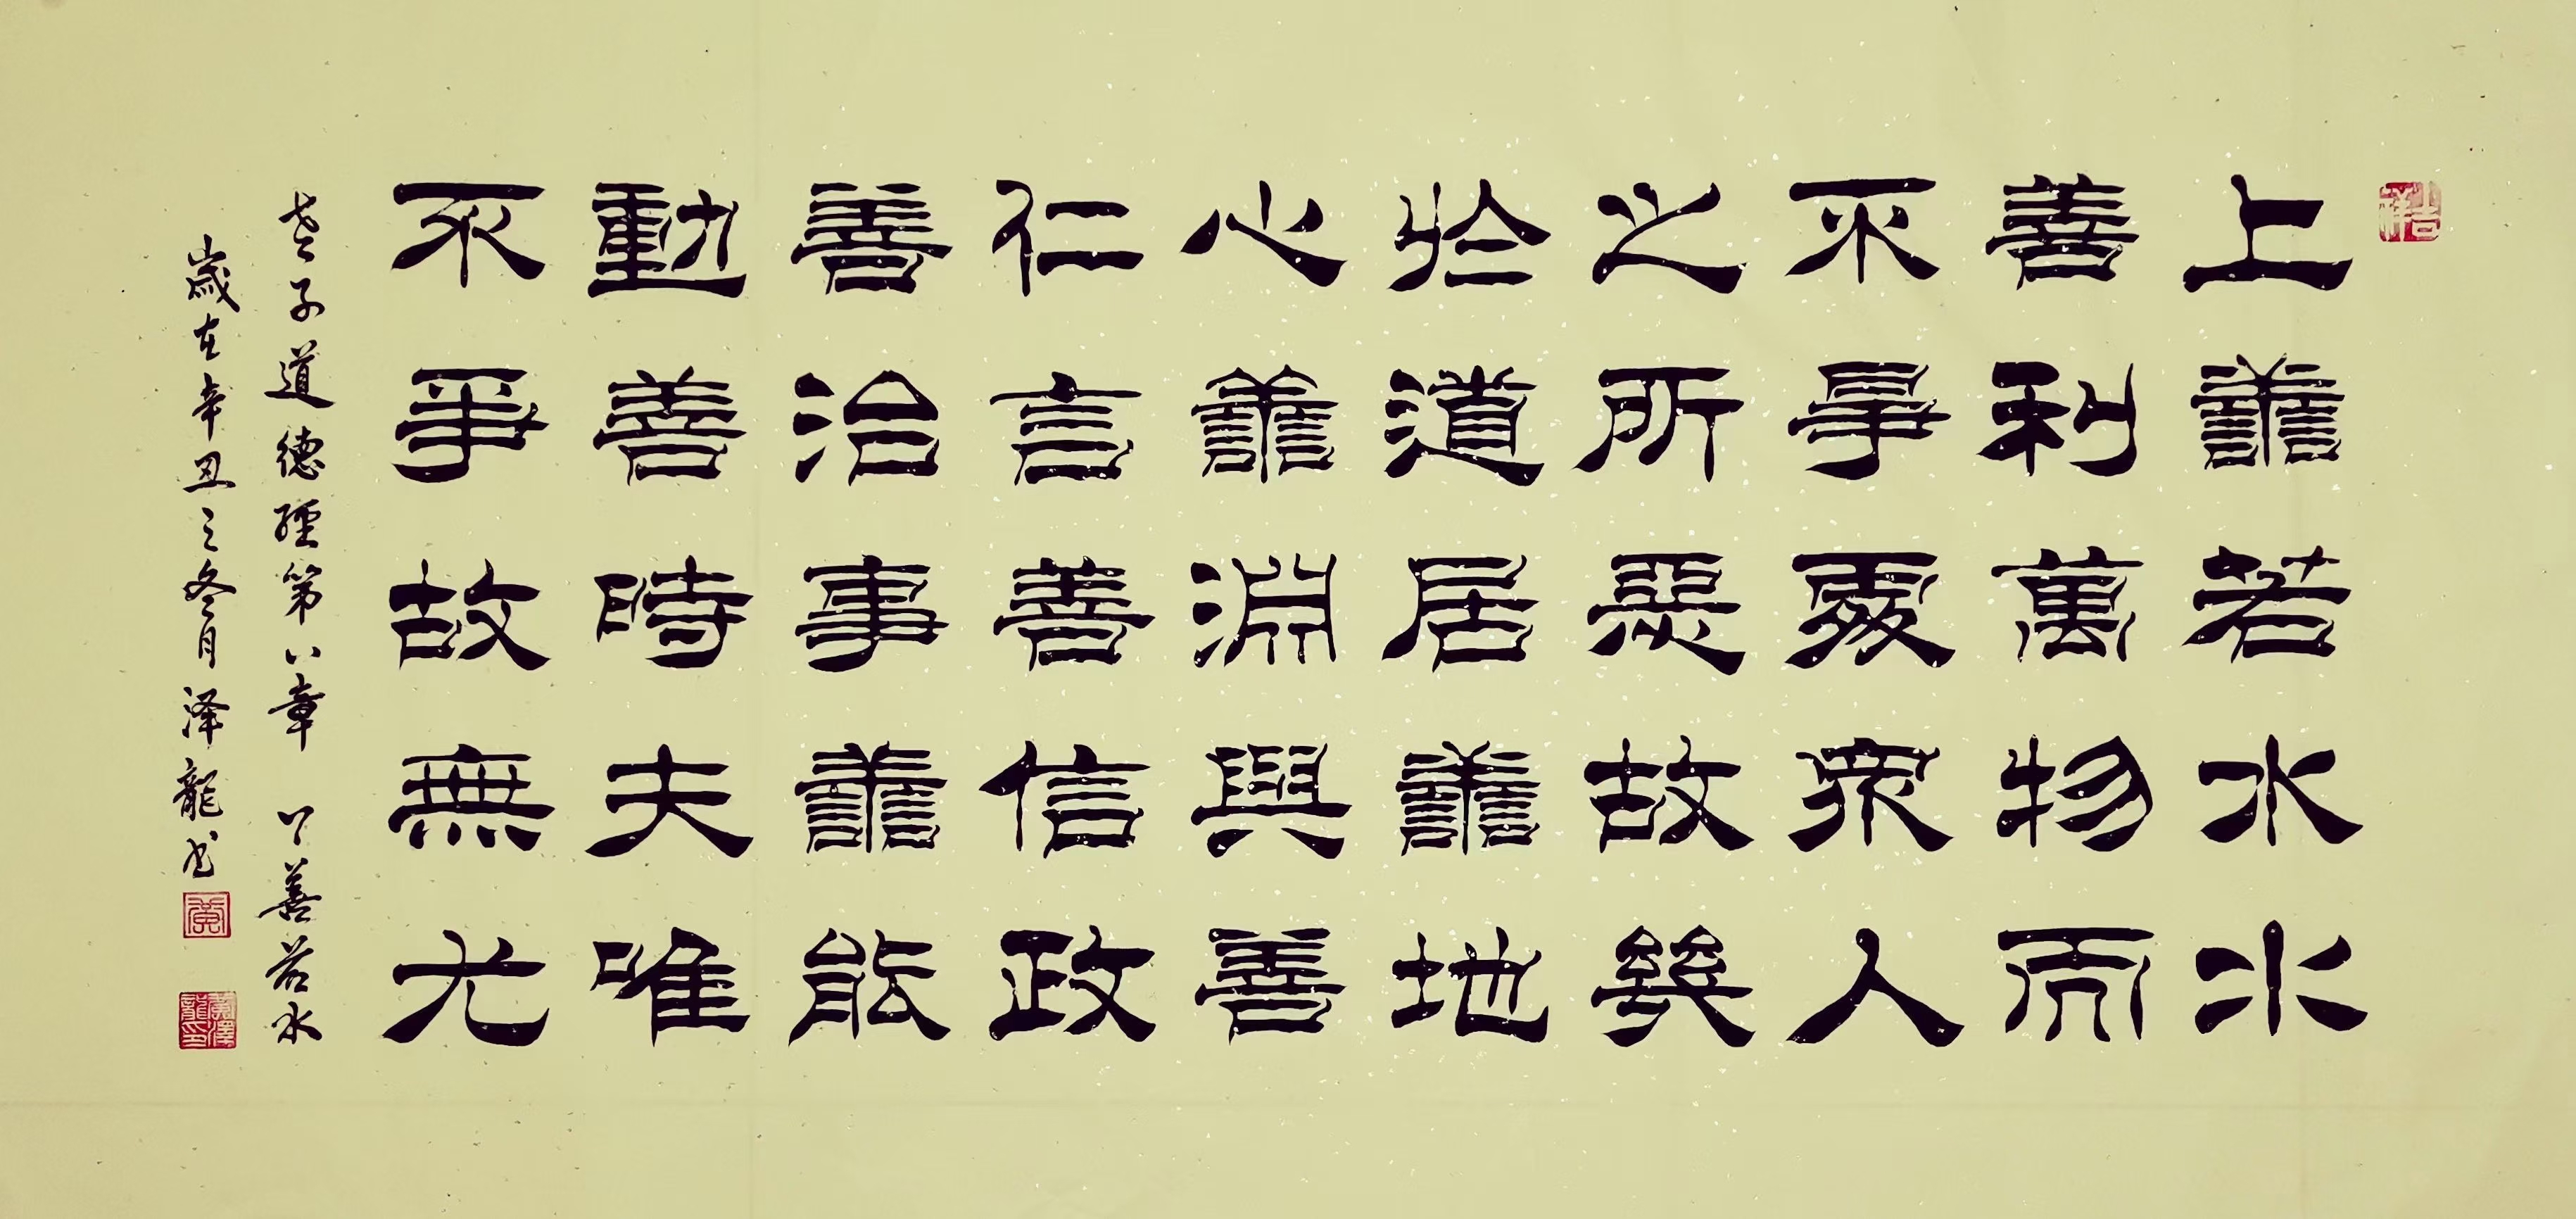 吉祥
上善若水水
善利萬物而
不爭處衆人
之所惡故幾
於道居善地
心善淵與善
仁言善信政
善治事善能
動善時夫唯
不爭故無尤
老子道德經第八章 上善若水
歲在辛丑之冬月泽龍书
黄澤龍印